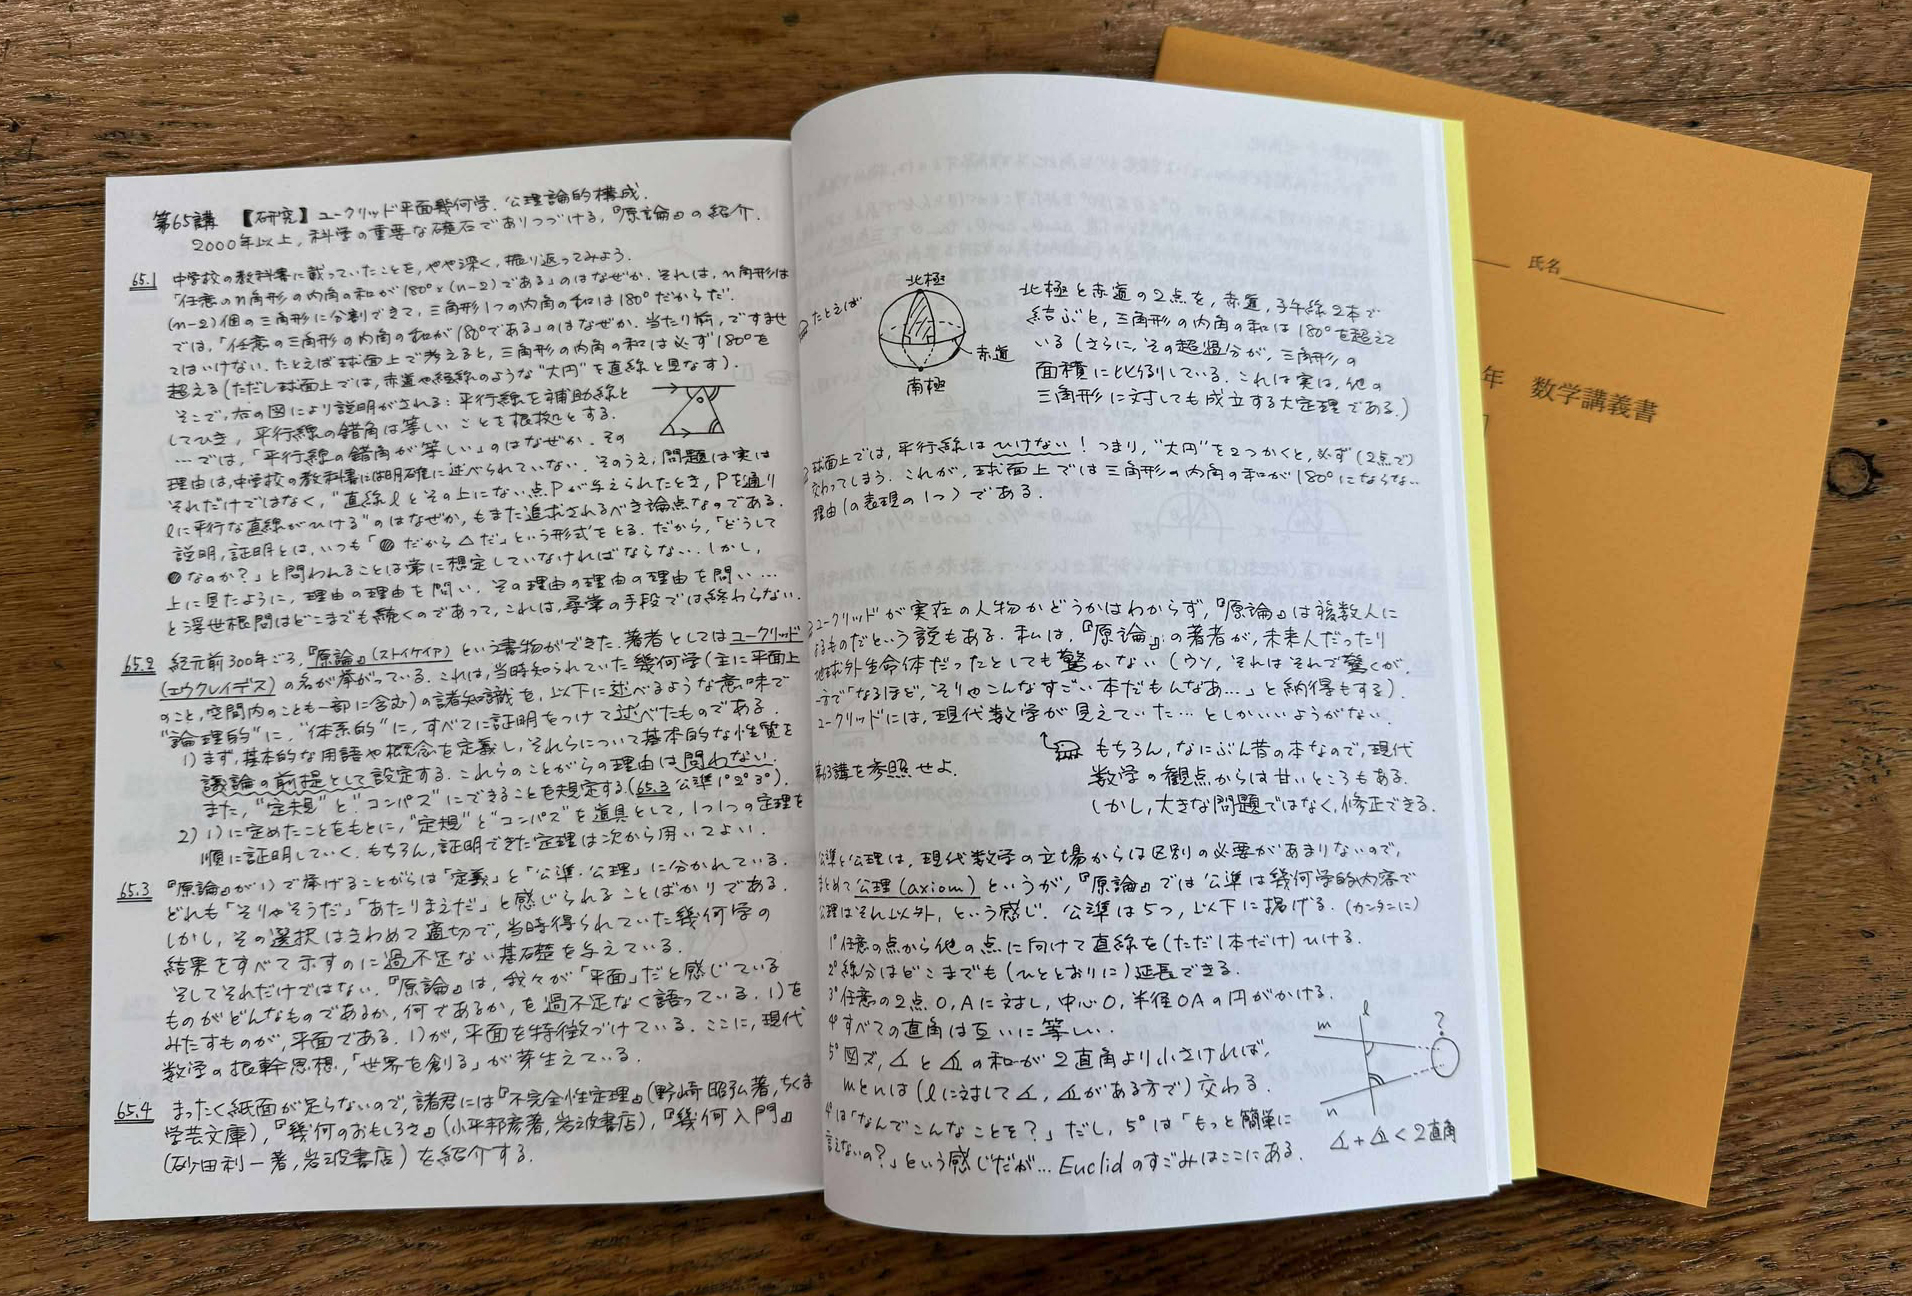 第65講 【研究】ユークリッド平面幾何学.公理論的構成.
2000年以上,科学の重要な礎石でありつづける,『原論』の紹介.
65.1 中学校の教科書に載っていたことを,やや深く,振り返ってみよう.
「任意のn角形の内角の和が180°×(n-2)である」のはなぜか.それは,n角形は
(n-2)個の三角形に分割できて,三角形1つの内角の和は180°だからだ.
では,「任意の三角形の内角の和が180°である」のはなぜか.当たり前,ですませ
てはいけない.たとえば球面上で考えると,三角形の内角の和は必ず180°を
超える(ただし球面上では,赤道や経線のような"大円"を直線と見なす).
そこで,右の図により説明がされる:平行線を補助線と
してひき,平行線の錯角は等しいことを根拠とする.
…では,「平行線の錯角が等しい」のはなぜか.その
理由は,中学校の教科書には明確に述べられていない.そのうえ,問題は実は
それだけではなく,"直線ℓとその上にない点Pが与えられたとき,Pを通り
ℓに平行な直線がひける"のはなぜか,もまた追求されるべき論点なのである.
説明,証明とは,いつも「◍だから△だ」という形式をとる.だから,「どうして
◍なのか?」と問われることは常に想定していなければならない.しかし,
上に見たように,理由の理由を問い,その理由の理由の理由を問い…
と浮世根問はどこまでも続くのであって,これは,尋常の手段では終わらない.
65.2 紀元前300年ごろ,『原論』(ストイケイア)という書物ができた.著者としてはユークリッド
(エウクレイデス)の名が挙がっている.これは,当時知られていた幾何学(主に平面上
のこと,空間内のことも一部に含む)の諸知識を,以下に述べるような意味で
"論理的"に,"体系的"に,すべてに証明をつけて述べたものである.
1)まず,基本的な用語や概念を定義し,それらについて基本的な性質を
議論の前提として設定する.これらのことがらの理由は問わない.
また,"定規"と"コンパス"にできることを規定する(65.3 公準1°2°3°).
2) 1)に定めたことをもとに,"定規"と"コンパス"を道具として,1つ1つの定理を
順に証明していく.もちろん,証明できた定理は次から用いてよい.
65.3 『原論』が1)で挙げることがらは「定義」と「公準・公理」に分かれている.
どれも「そりゃそうだ」「あたりまえだ」と感じられることばかりである.
しかし,その選択はきわめて適切で,当時得られていた幾何学の
結果をすべて示すのに過不足ない基礎を与えている.
そしてそれだけではない.『原論』は,我々が「平面」だと感じている
ものがどんなものであるか,何であるか,を過不足なく語っている.1)を
みたすものが,平面である.1)が,平面を特徴づけている.ここに,現代
数学の根幹思想,「世界を創る」が芽生えている.
65.4 まったく紙面が足らないので,諸君には『不完全性定理』(野﨑昭弘著,ちくま
学芸文庫),『幾何のおもしろさ』(小平邦彦著,岩波書店),『幾何入門』
(砂田利一著,岩波書店)を紹介する.
たとえば
北極
赤道
南極
北極と赤道の2点を,赤道,子午線2本で
結ぶと,三角形の内角の和は180°を超えて
いる(さらに,その超過分が,三角形の
面積に比例している.これは実は,他の
三角形に対しても成立する大定理である.)
球面上では,平行線はひけない!つまり,"大円"を2つかくと,必ず(2点で)
交わってしまう.これが,球面上では三角形の内角の和が180°にならない
理由(の表現の1つ)である.
ユークリッドが実在の人物かどうかはわからず,『原論』は複数人に
よるものだという説もある.私は,『原論』の著者が,未来人だったり
地球外生命体だったとしても驚かない(ウソ,それはそれで驚くが,
一方で「なるほど,そりゃこんなすごい本だもんなあ…」と納得もする).
ユークリッドには,現代数学が見えていた…としかいいようがない.
もちろん,なにぶん昔の本なので,現代
数学の観点からは甘いところもある.
しかし,大きな問題ではなく,修正できる.
第63講を参照せよ.
公準と公理は,現代数学の立場からは区別の必要があまりないので,
まとめて公理(axiom)というが,『原論』では公準は幾何学的内容で
公理はそれ以外,という感じ.公準は5つ,以下に掲げる.(カンタンに)
1° 任意の点から他の点に向けて直線を(ただ1本だけ)ひける.
2° 線分はどこまでも(ひととおりに)延長できる.
3° 任意の2点O,Aに対し,中心O,半径OAの円がかける.
4° すべての直角は互いに等しい.
5° 図で,∠と∠の和が2直角より小さければ,
mとnは(ℓに対して∠,∠がある方で)交わる.
ℓ
m
?
n
∠+∠<2直角
4°は「なんでこんなことを?」だし,5°は「もっと簡単に
言えないの?」という感じだが…Euclidのすごみはここにある.
氏名
年 数学講義書